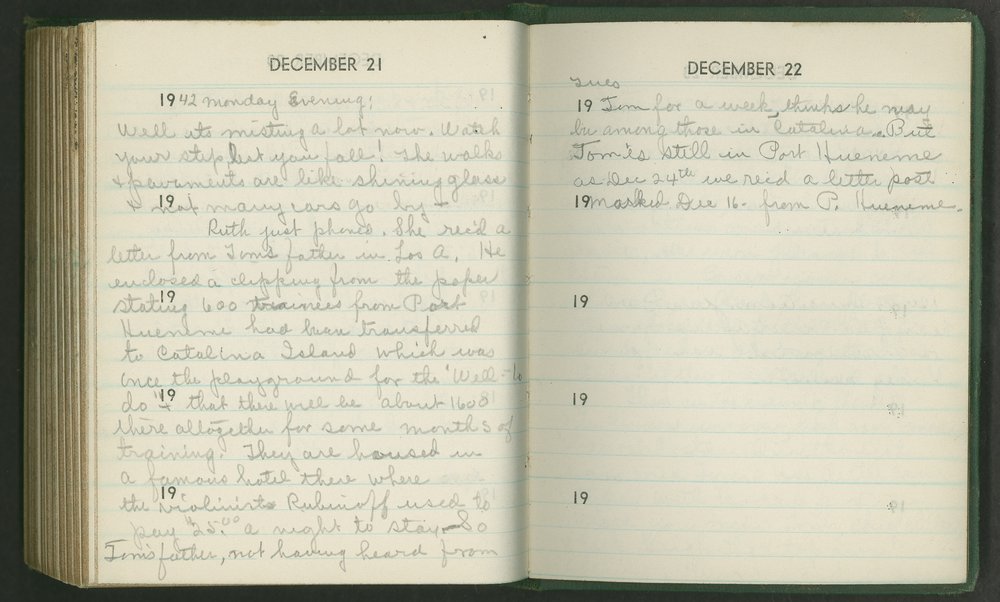 DECEMBER 21
1942 Monday Evening;
Well its misting a lot now. Watch
your step, lest you fall! The walks
& pavements are like shining glass
19 & not many cars go by –
Ruth just phoned. She rec'd a
letter from Tom's father in Los A. He
enclosed a clipping from the paper
19 stating 600 trainees from Port
Hueneme had been transferred
to Catalina Island which was
once the playground for the "Well-to
19 do" & that there will be about 1600
there altogether for some months of
training. They are housed in
a famous hotel there where
19 the violinist Rubinoff used to
pay $25.00 a night to stay – So
Tom's father, not having heard from
DECEMBER 22
Tues
19 Tom for a week, thinks he may
be among those in Catalina. But
Tom is still in Port Hueneme
as Dec 24th we rec'd a letter post
19 marked Dec 16 - from P. Hueneme.
19
19
19